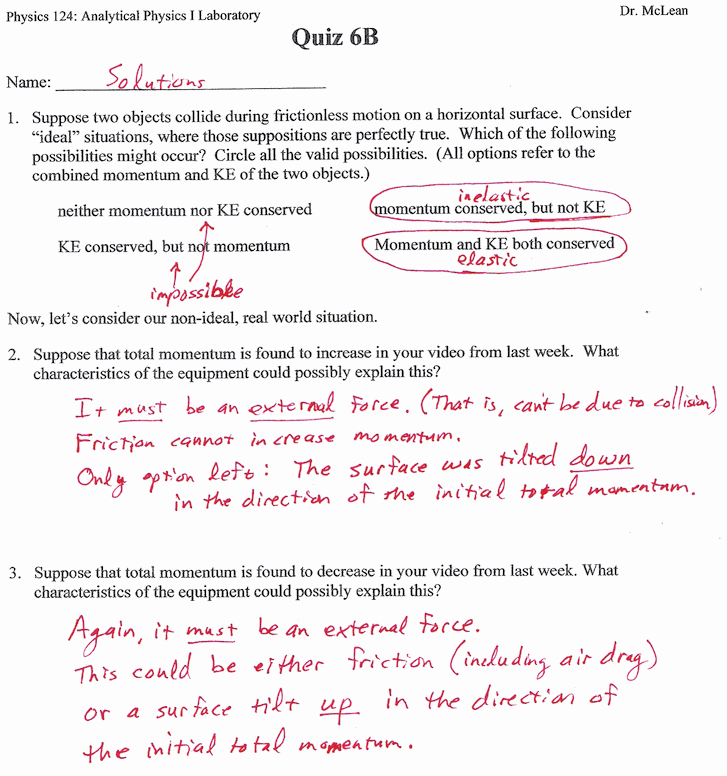 Physics 124: Analytical Physics I Laboratory
Dr. McLean
Quiz 6B
Name: Solutions
1. Suppose two objects collide during frictionless motion on a horizontal surface. Consider
“ideal” situations, where those suppositions are perfectly true. Which of the following
possibilities might occur? Circle all the valid possibilities. (All options refer to the
combined momentum and KE of the two objects.)
inelastic
neither momentum nor KE conserved
momentum conserved, but not KE
KE conserved, but not momentum
Momentum and KE both conserved
elastic
impossible
Now, let’s consider our non-ideal, real world situation.
2. Suppose that total momentum is found to increase in your video from last week. What
characteristics of the equipment could possibly explain this?
It must be an external force. (That is, can't be due to collision)
Friction cannot increase momentum.
Only option left: The surface was tilted down
in the direction of the initial total momentum.
3. Suppose that total momentum is found to decrease in your video from last week. What
characteristics of the equipment could possibly explain this?
Again, it must be an external force.
This could be either friction (including air drag)
or a surface tilt up in the direction of
the initial total momentum.